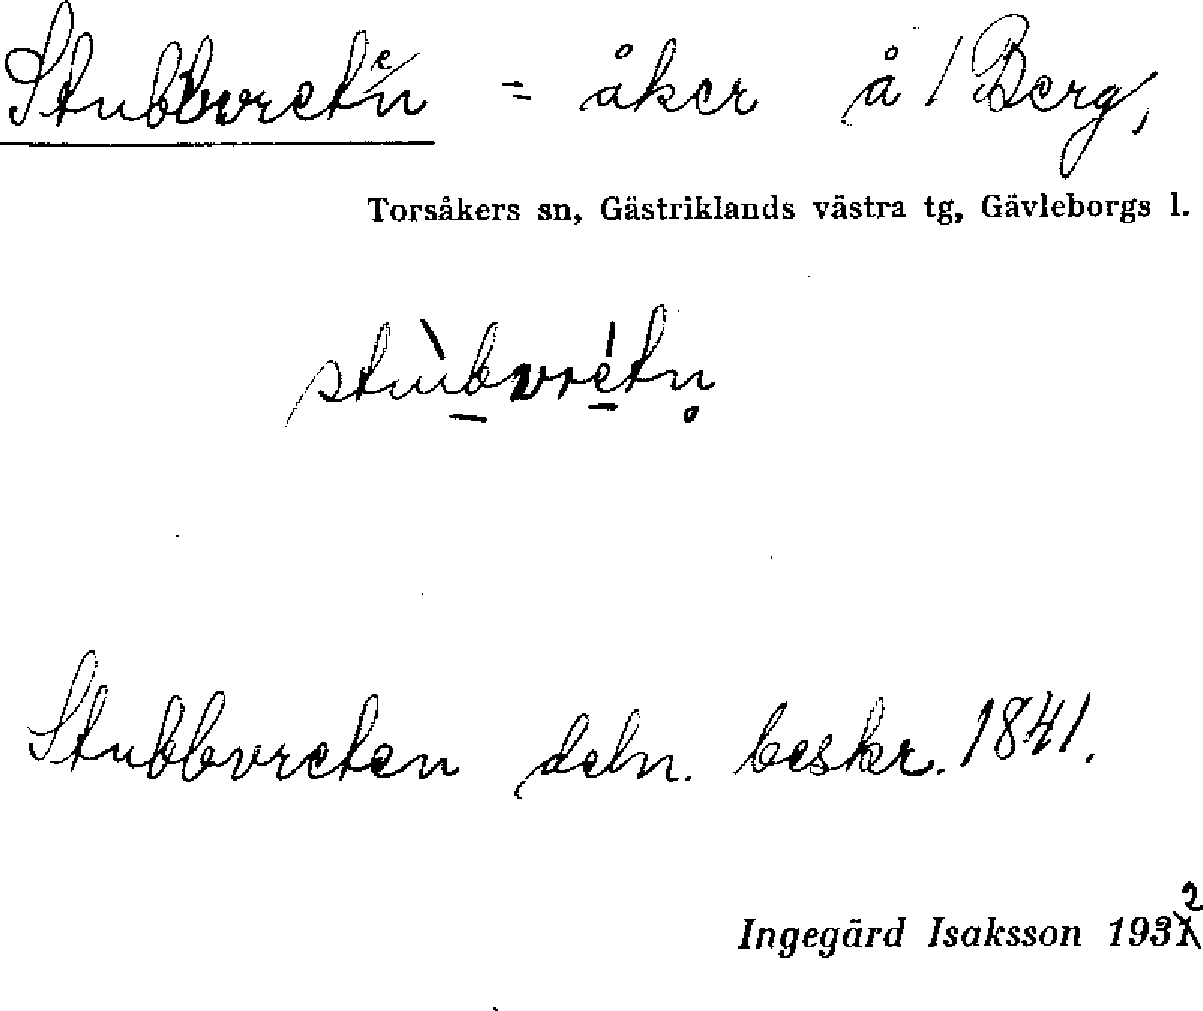 Stubbvreten = åker å / Berg,
Torsåkers sn, Gästriklands västra tg, Gävleborgs l.
stùbvrétn̥
Stubbvreten deln. beskr. 1841.
Ingegärd Isaksson 1932